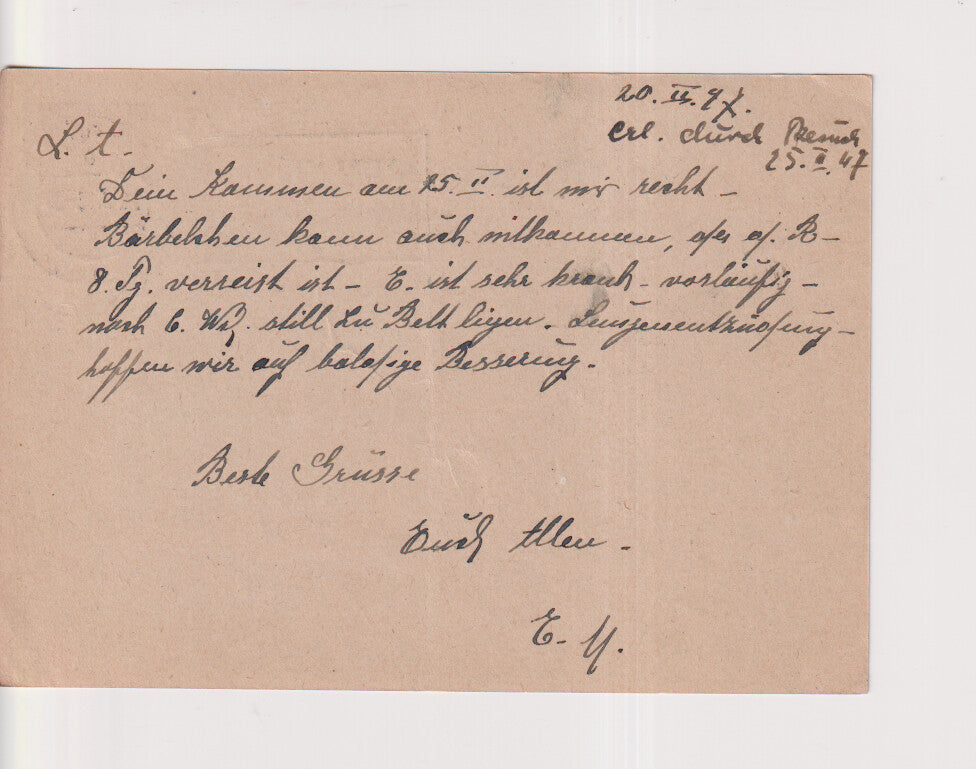 20. II. 47.
erl. durch Besuch
25. II. 47
L. t.
Dein Kommen am 25. II. ist mir recht –
Bärbelchen kann auch mitkommen, da d. B–
8. Tg. verreist ist – E. ist sehr krank – vorläufig –
noch 6. W. still zu Bett liegen. Lungenentzündung –
hoffen wir auf baldige Besserung.
Beste Grüsse
Euch Allen –
E.